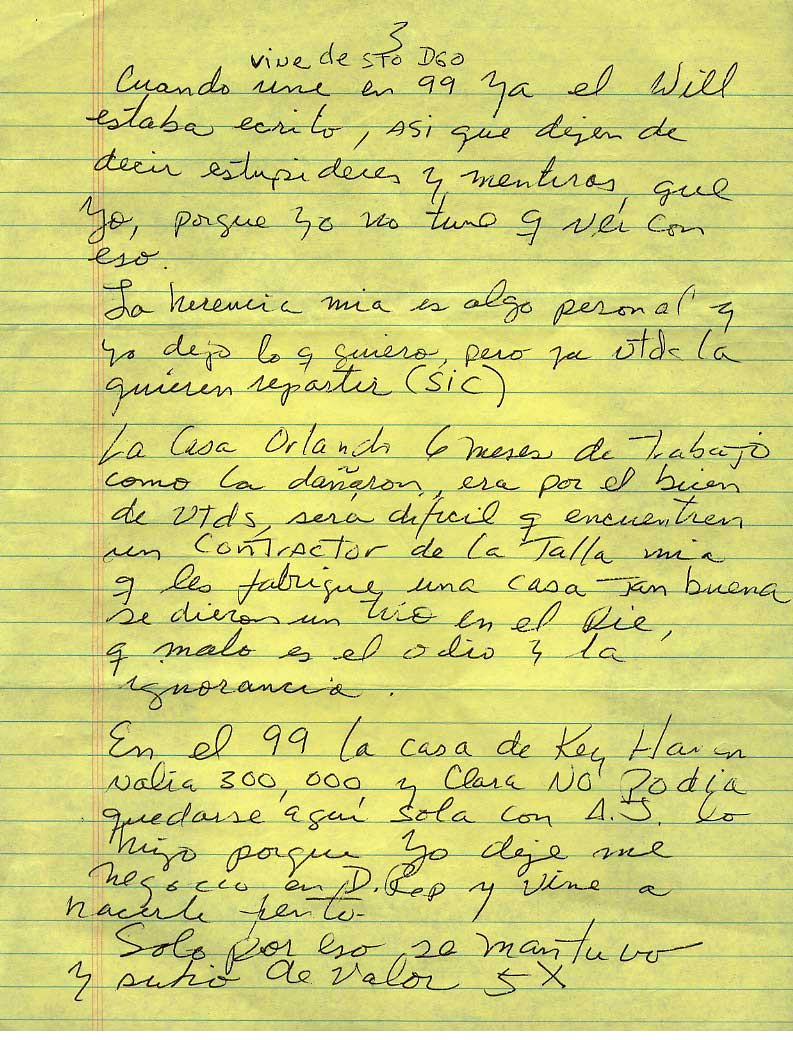 3
vine de STO DGO
Cuando vine en 99 Ya el Will
estaba ecrito, ASi que dejen de
decir estupideces y mentiras, que
Yo, porque Yo no tuve q ver con
eso.
La herencia mia es algo personal y
yo dejo lo q quiero, pero ya Utds la
quieren repartir (SiC)
La Casa Orlando 6 meses de Trabajo
como la dañaron, era por el bien
de UTds, será dificil q encuentren
un ConTrACTor de la Talla mia
q les fabrique una casa Tan buena
se dieron un tiro en el Pie,
q malo es el odio y la
ignorancia.
En el 99 la casa de Key Haven
valia 300,000 y Clara NO Podia
quedarse aqui Sola con A.J. lo
hizo porque Yo deje mi
negocio en D.Rep y Vine a
hacerle frente.
Solo por eso se mantuvo
y subio de Valor 5X